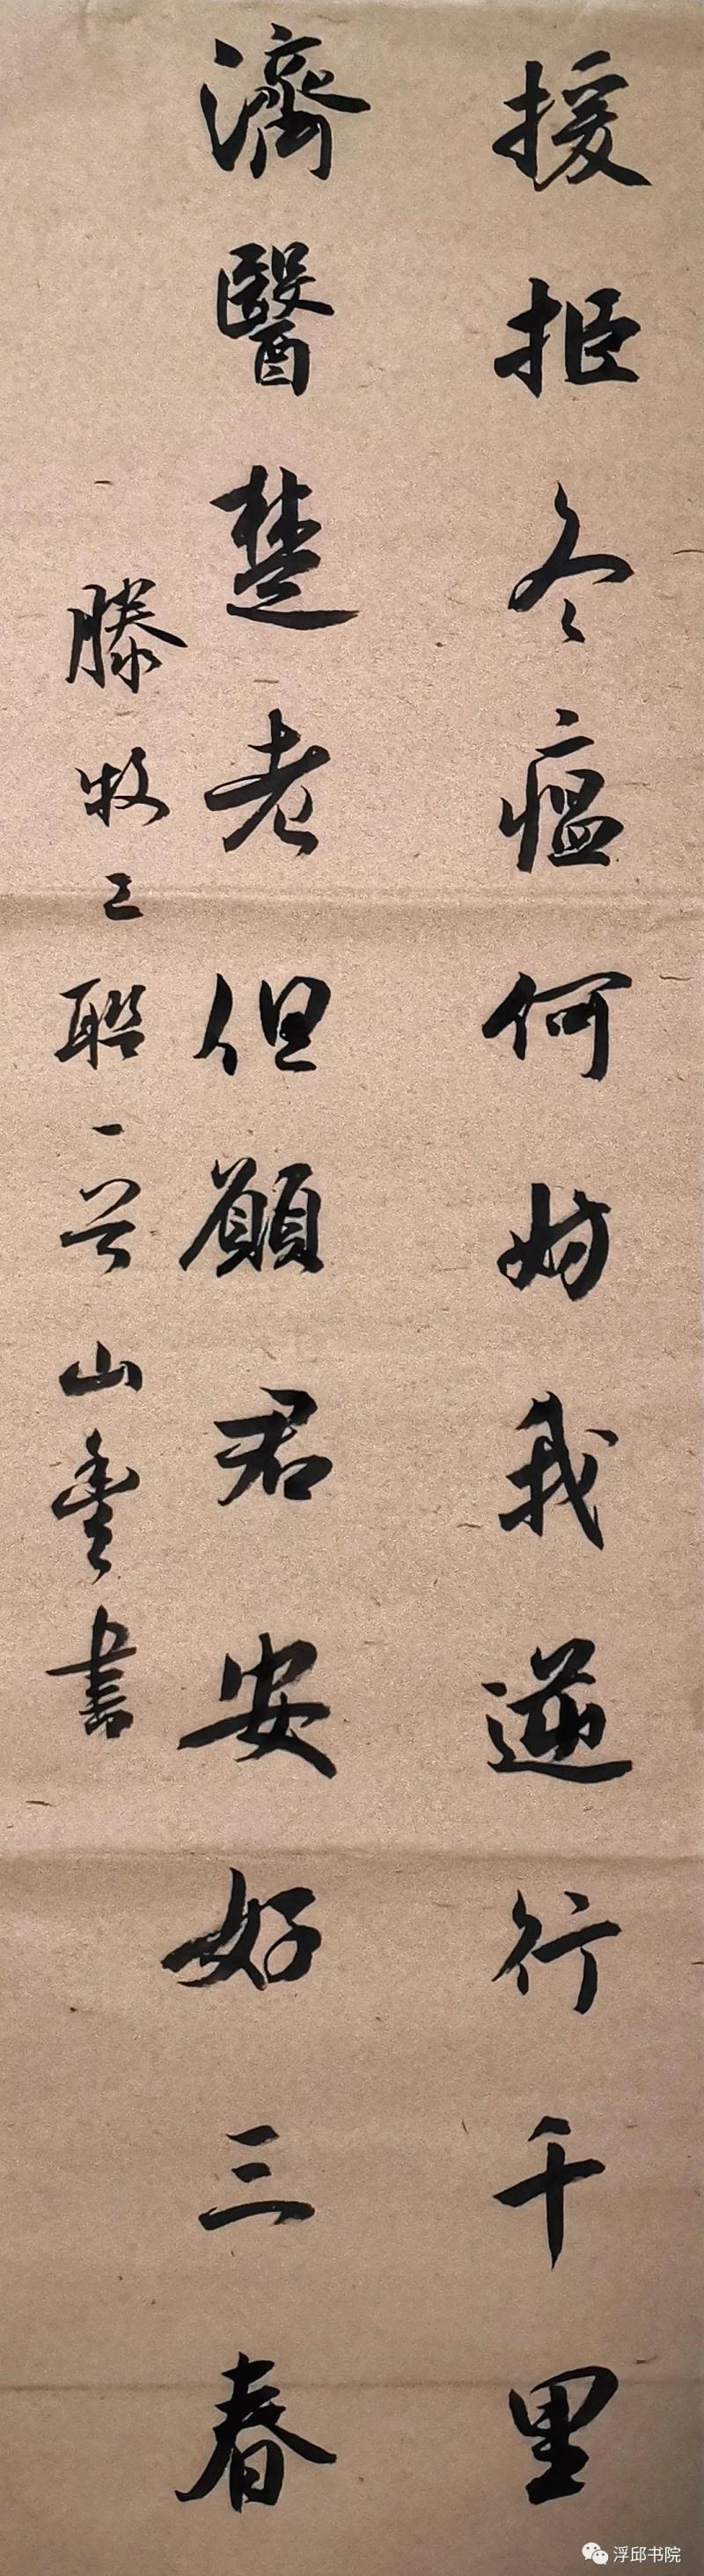 援拒冬瘟何妨我逆行千里
濟醫楚老但願君安好三春
滕牧工聯一山書
浮邱书院